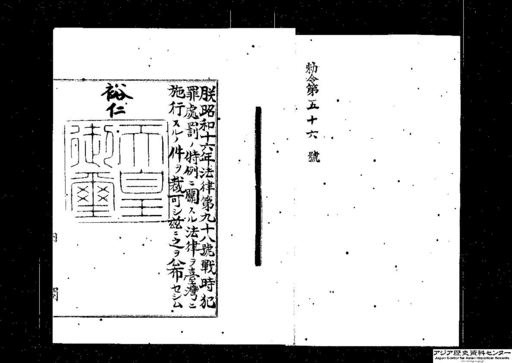 勅令第五十六號
朕昭和十六年法律第九十八號戰時犯
罪處罰ノ特例ニ關スル法律ヲ臺灣ニ
施行スルノ件ヲ裁可シ茲ニ之ヲ公布セシム
裕仁
天皇
御璽
内閣
アジア歴史資料センター
Japan Center for Asian Historical Records